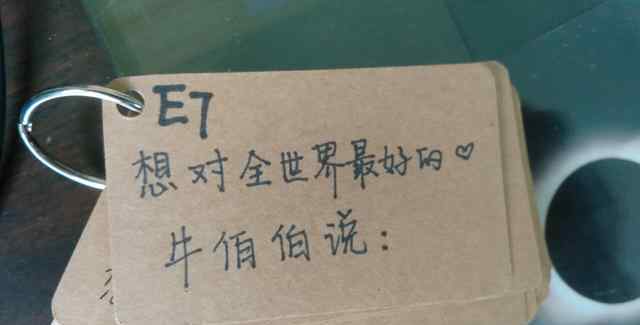 E7
想对全世界最好的♡
牛伯伯说：